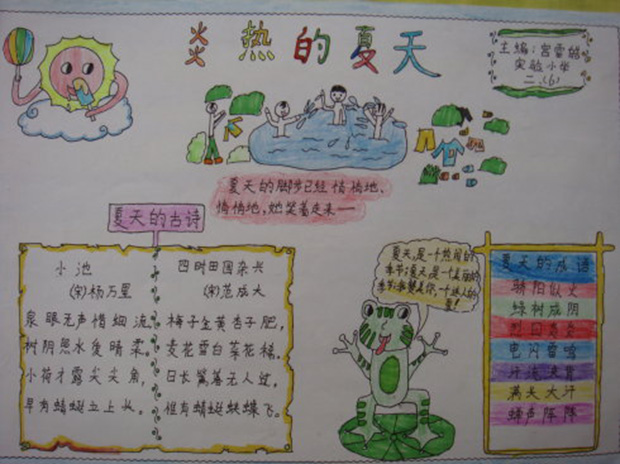 炎热的夏天
主编:宫雪皓
实验小学
二.(6)
夏天的脚步已经悄悄地、
悄悄地,她笑着走来——
夏天的古诗
小池
(宋)杨万里
泉眼无声惜细流,
树阴照水爱晴柔。
小荷才露尖尖角,
早有蜻蜓立上头。
四时田园杂兴
(宋)范成大
梅子金黄杏子肥,
麦花雪白菜花稀。
日长篱落无人过,
惟有蜻蜓蛱蝶飞。
夏天,是一个热闹的
季节;夏天,是一个美丽的
夏天的成语
骄阳似火
绿树成阴
烈日炎炎
电闪雷鸣
汗流夹背
满头大汗
蝉声阵阵